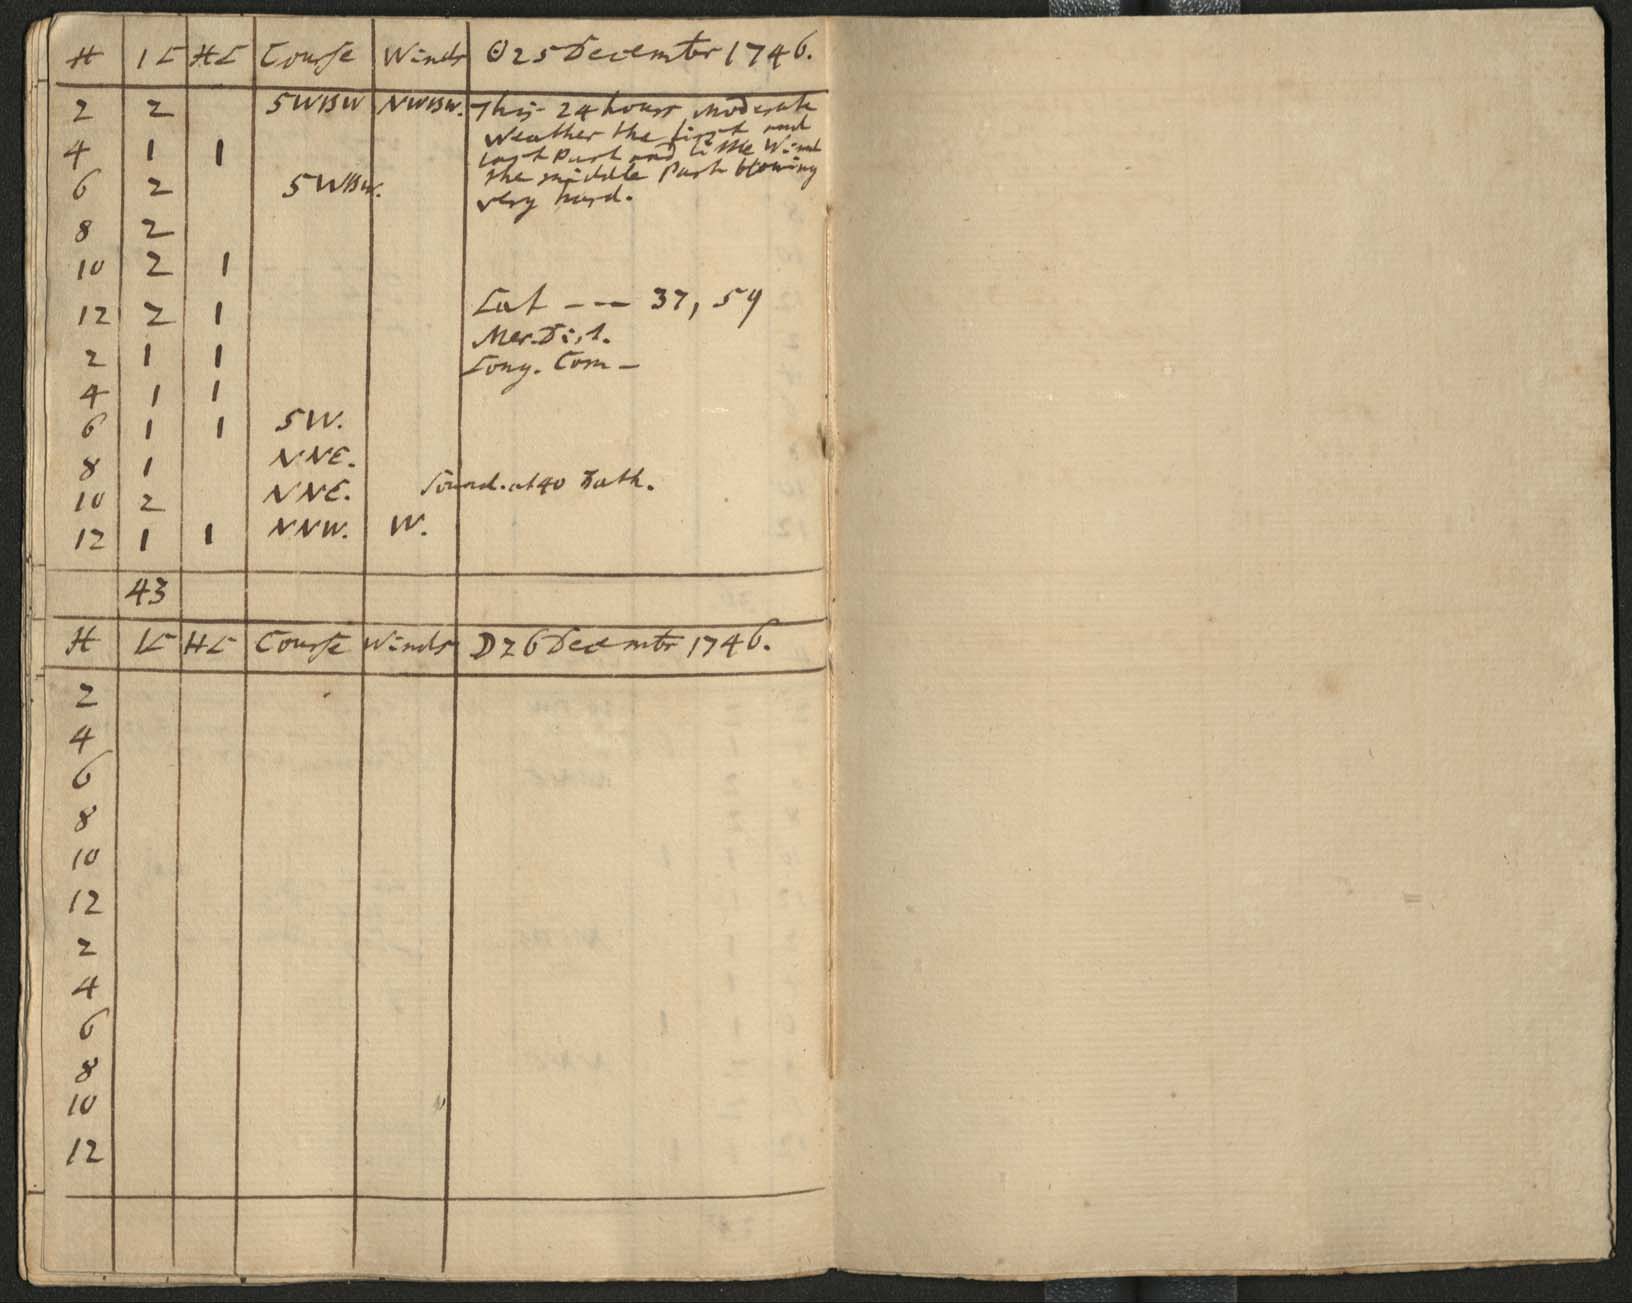 H 1L HL Course Winds ☉ 25 December 1746.
2 2 SWBW NWBW. This 24 hours moderate
weather the first and
4 1 1 last Part and little Wind
the middle Part blowing
6 2 SWBW. very hard.
8 2
10 2 1
12 2 1 Lat --- 37, 59
Mer. Dist.
2 1 1 Long. Com -
4 1 1
6 1 1 SW.
8 1 NNE.
10 2 NNE. Sound. at 40 Fath.
12 1 1 NNW. W.
43
H 1L HL Course Winds D 26 December 1746.
2
4
6
8
10
12
2
4
6
8
10
12